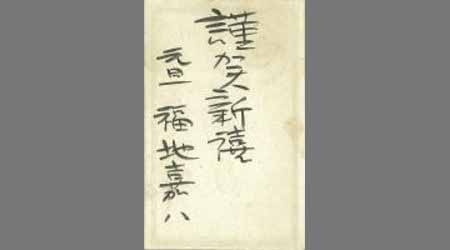 謹賀新禧
元旦 福地嘉八